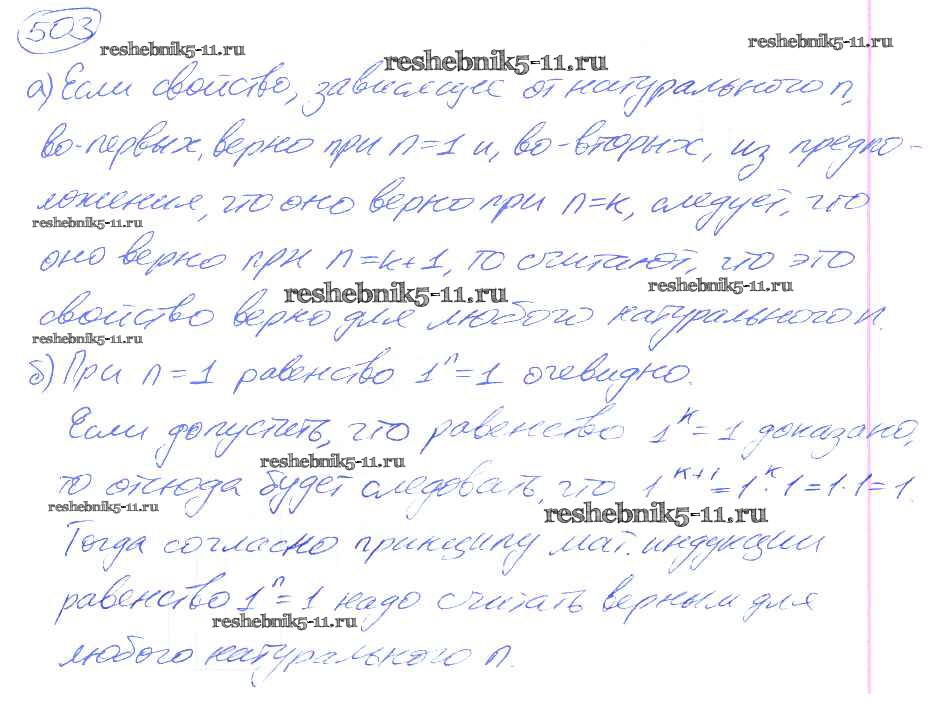 503
reshebnik5-11.ru
reshebnik5-11.ru
reshebnik5-11.ru
а) Если свойство, зависящее от натурального n,
во-первых, верно при n=1 и, во-вторых, из предпо-
ложения, что оно верно при n=k, следует, что
reshebnik5-11.ru
оно верно при n=k+1, то считают, что это
reshebnik5-11.ru
reshebnik5-11.ru
свойство верно для любого натурального n.
reshebnik5-11.ru
б) При n=1 равенство 1ⁿ=1 очевидно.
Если допустить, что равенство 1ᵏ=1 доказано,
reshebnik5-11.ru
то отсюда будет следовать, что 1ᵏ⁺¹=1ᵏ·1=1·1=1.
reshebnik5-11.ru
reshebnik5-11.ru
Тогда согласно принципу мат. индукции
равенство 1ⁿ=1 надо считать верным для
reshebnik5-11.ru
любого натурального n.